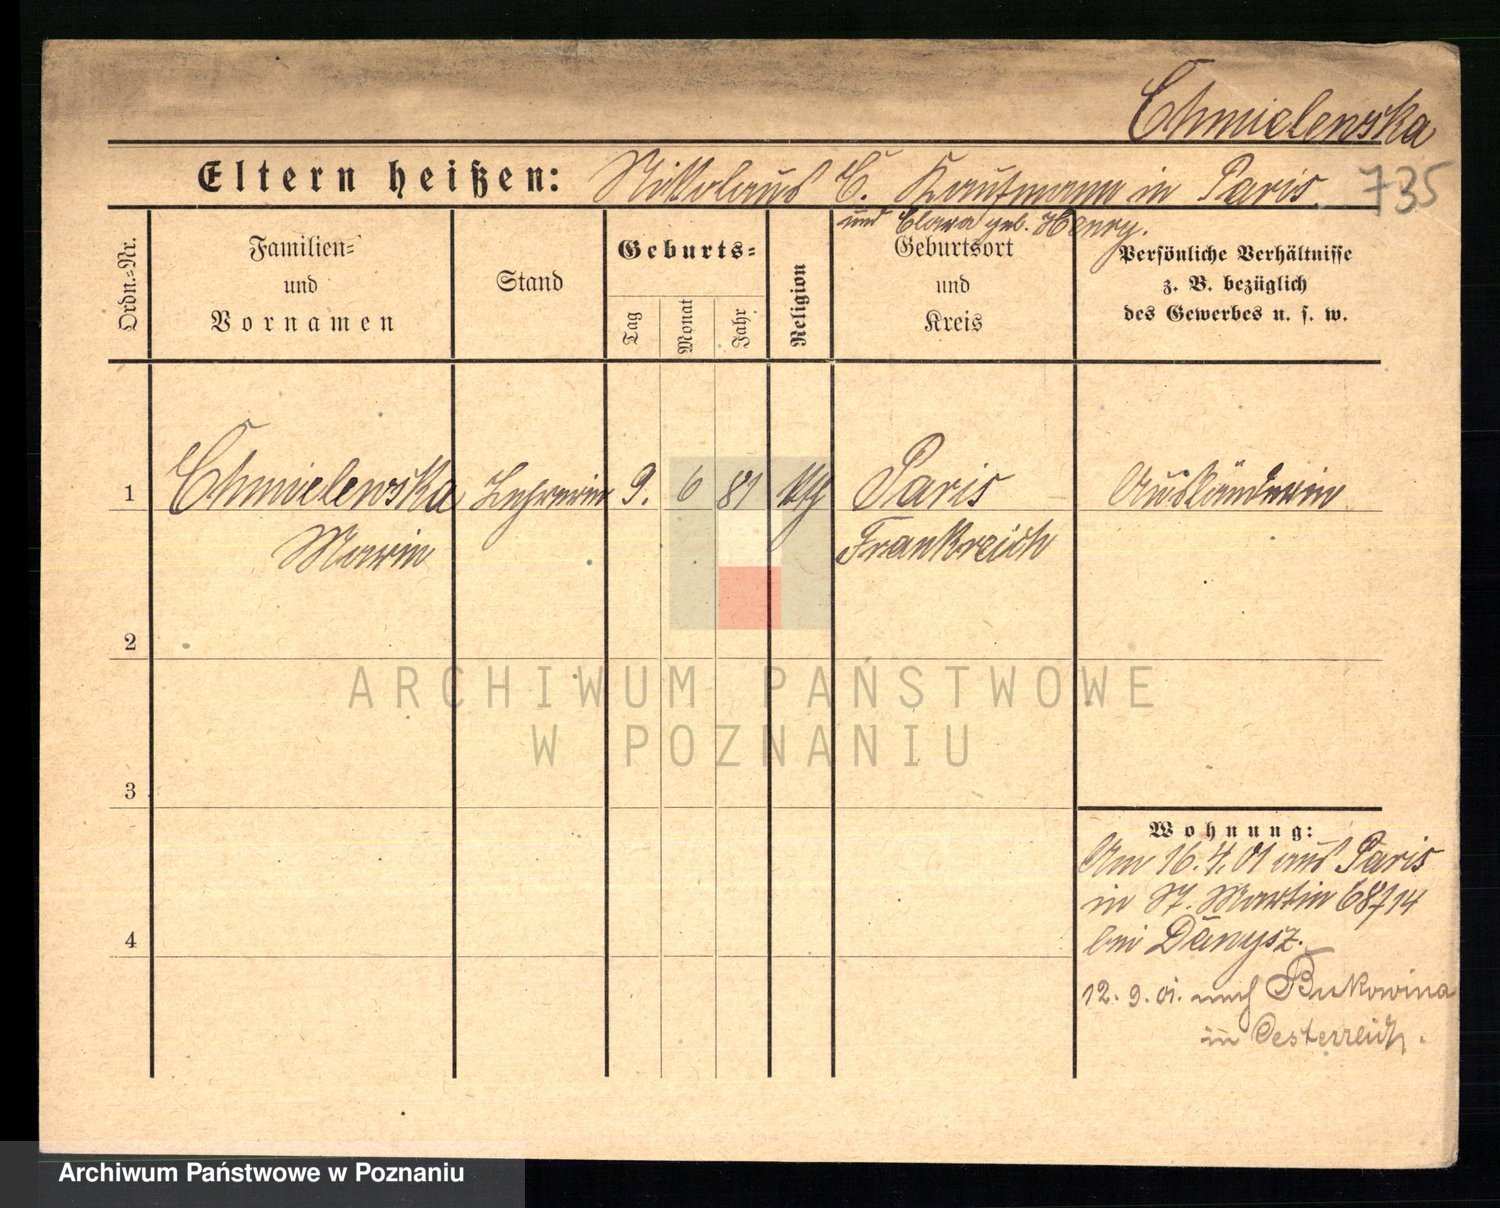 Chmielewska
Eltern heißen: Nikolaus C. Kaufmann in Paris. 735
und Clara geb. Henry.
Ordn.=Nr.
Familien=
und
Vornamen
Stand
Geburts=
Tag
Monat
Jahr
Religion
Geburtsort
und
Kreis
Persönliche Verhältnisse
z. B. bezüglich
des Gewerbes u. s. w.
1 Chmielewska Lehrerin 9. 6 81 Paris Ausländerin
Marie Frankreich
2
3
4
Wohnung:
Am 16.4.01 aus Paris
in St. Martin 68/14
bei Danysz.
12.9.01. nach Bukowina
in Oesterreich.
ARCHIWUM PAŃSTWOWE
W POZNANIU
Archiwum Państwowe w Poznaniu